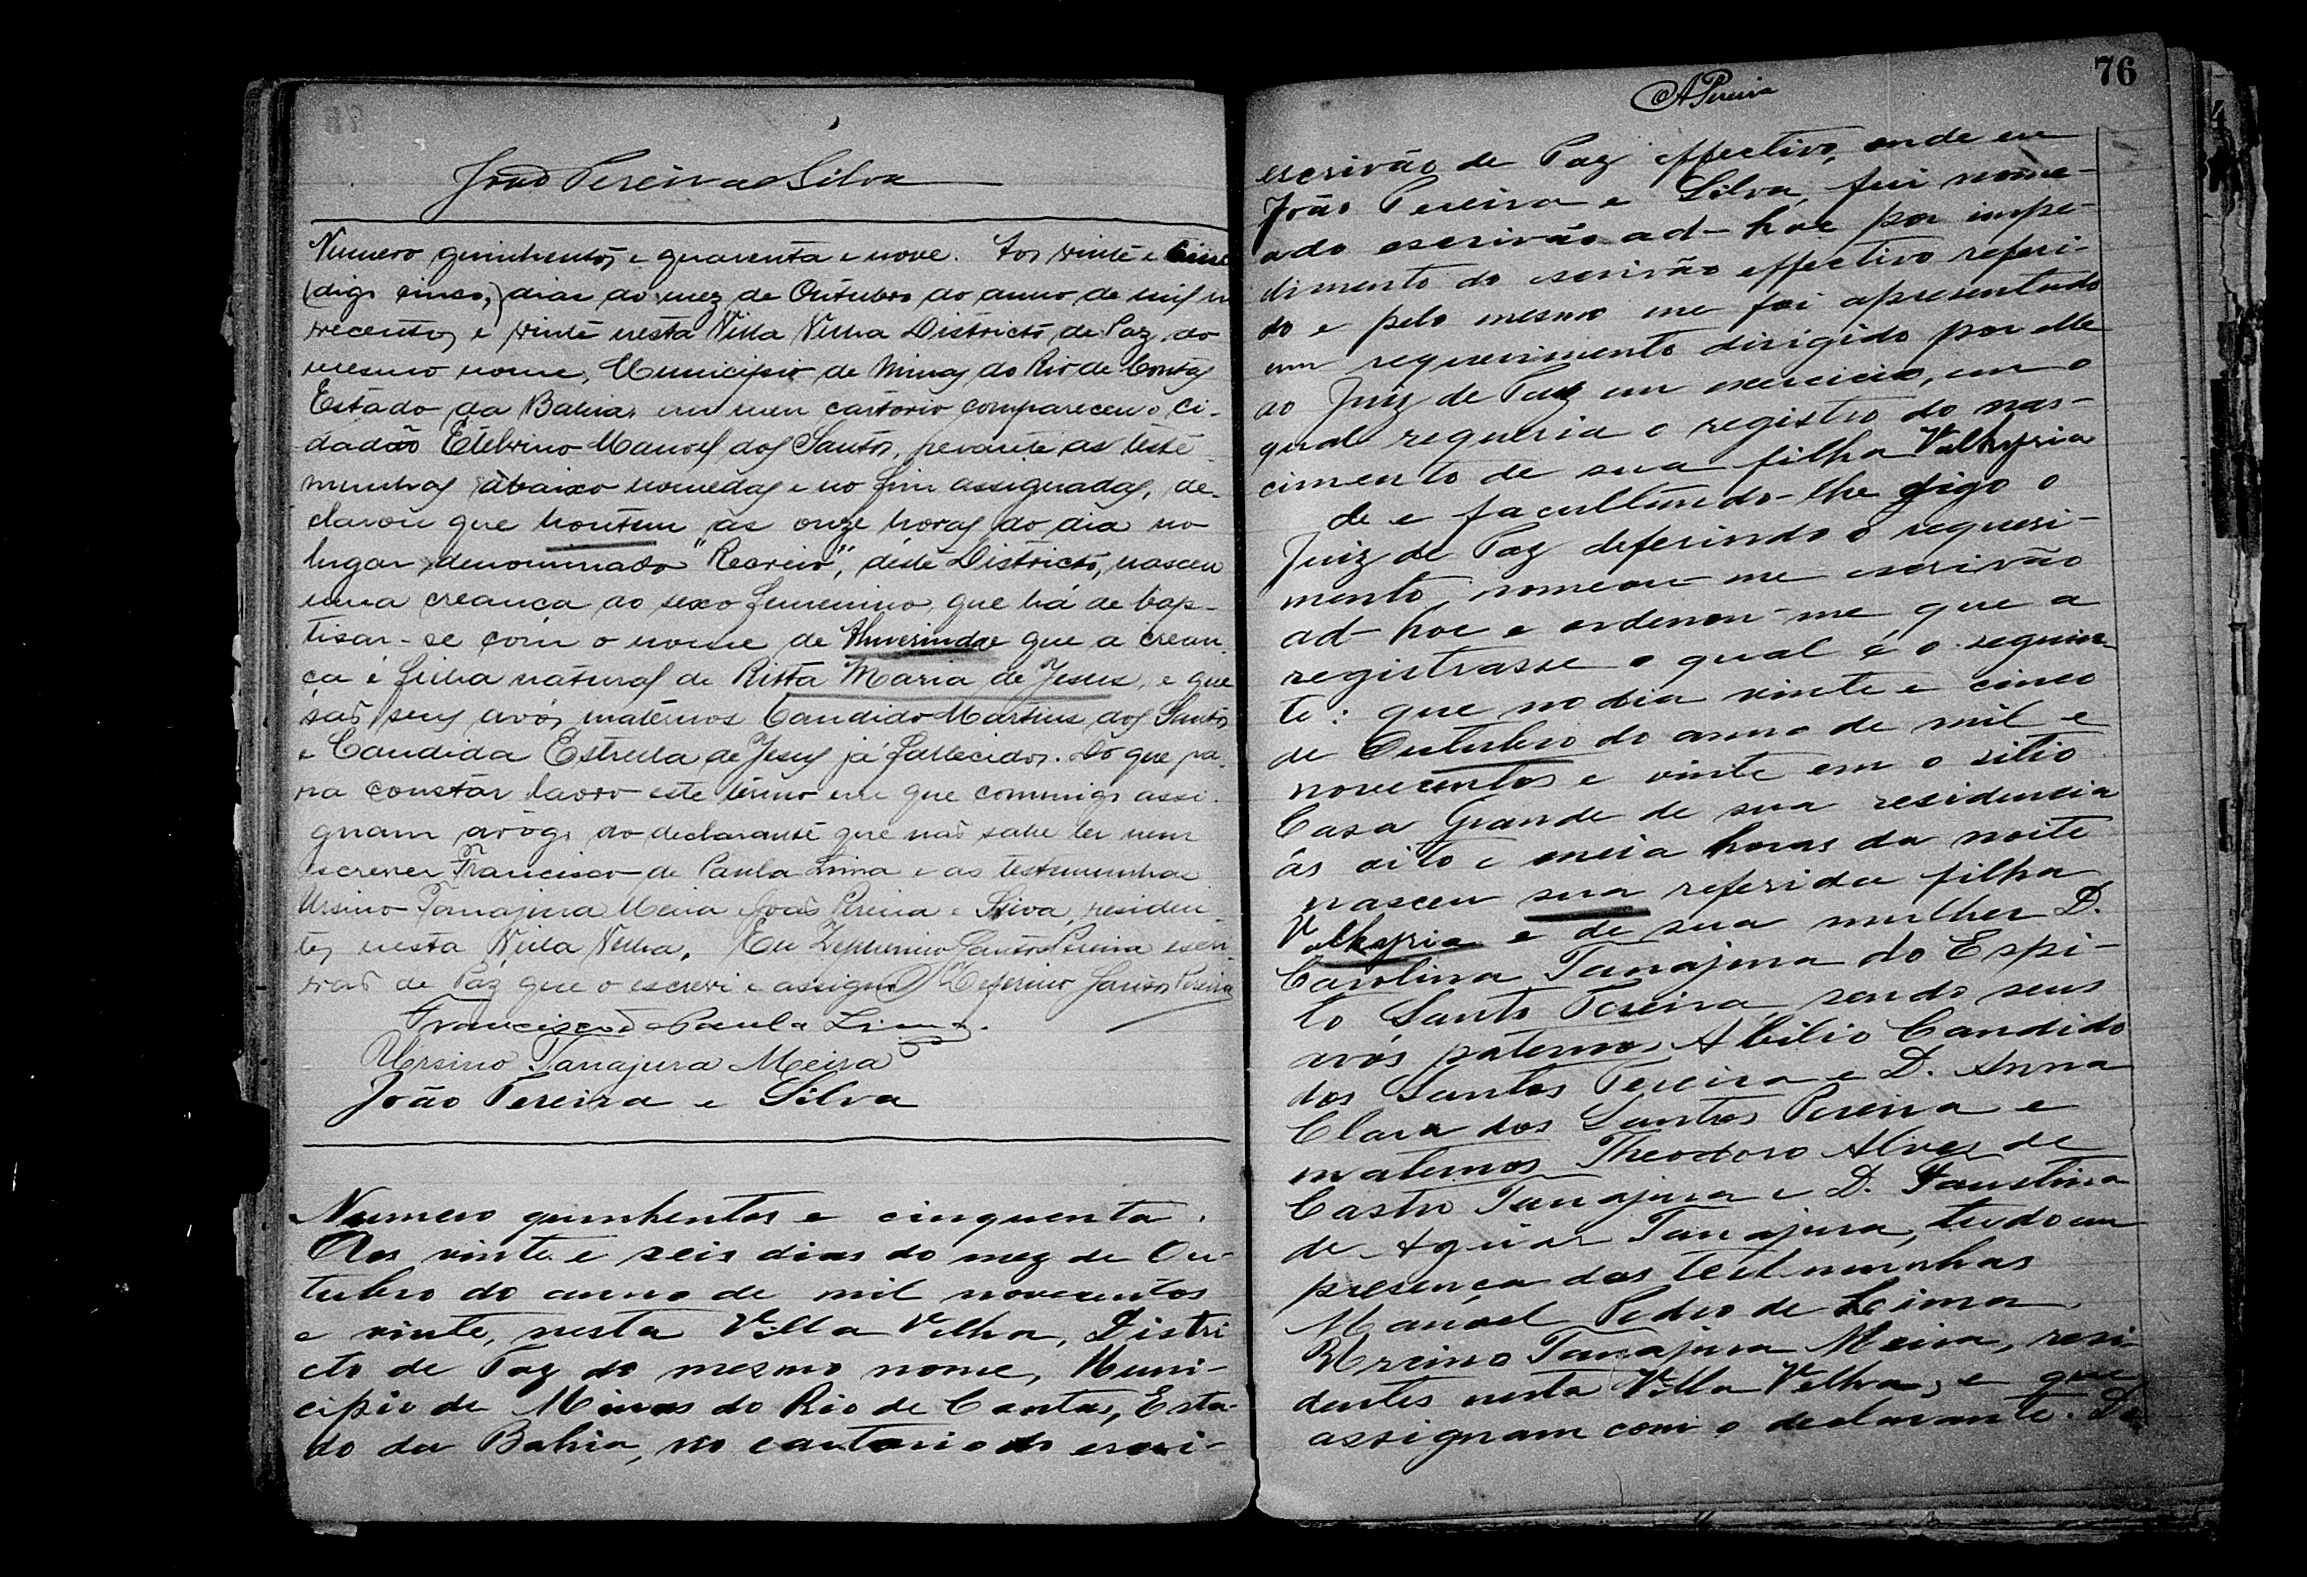 João Pereira e Silva
Numero quinhentos e quarenta e nove. Aos vinte e cinco
(digo cinco,) dias do mez de Outubro do anno de mil no
vecentos e vinte nesta Villa Velha Districto de Paz do
mesmo nome, Municipio de Minas do Rio de Contas
Estado da Bahia, em meu cartorio compareceu o ci-
dadão Etelvino Manoel dos Santos, perante as teste-
munhas abaixo nomedas e no fim assignadas, de-
clarou que hontem as onze horas do dia no
lugar denominado "Recreio", deste Districto, nasceu
uma creança do sexo femenino que há de bap-
tisar-se com o nome de que a crean-
ça é filha natural de Ritta Maria de Jesus, e que
são seus avós maternos Candido Martins dos Santos
e Candida Estrella de Jesus já fallecidos. Do que pa-
ra constar lavro este termo em que commigo assi-
gnam arogo do declarante que não sabe ler nem
escrever Francisco de Paula Lima e as testemunhas
Ursino Tanajura Meira e João Pereira e Silva, residen-
tes nesta Villa Velha. Eu Zepherino Santos Pereira escri-
vão de Paz que o escrevi e assigno Zeferino Santos Pereira
Francisco de Paula Lima.
Ursino Tanajura Meira
João Pereira e Silva
Numero quinhentos e cinquenta.
Aos vinte e seis dias do mez de Ou-
tubro do anno de mil novecentos
e vinte, nesta Villa Velha, Distri
cto de Paz do mesmo nome, Muni-
cipio de Minas do Rio de Contas, Esta-
do da Bahia, no cartorio do escri-
76
APereira
escrivão de Paz effectivo, onde eu
João Pereira e Silva, fui nome-
ado escrivão ad-hoc por impe-
dimento do escrivão effectivo referi-
do e pelo mesmo me foi apresentado
um requerimento dirigido por elle
ao Juiz de Paz em exercicio, em o
qual requeria o registro do nas-
cimento de sua filha Valkyria
de e facultando-lhe digo o
Juiz de Paz deferindo o requeri-
mento, nomeou-me escrivão
ad-hoc e ordenou-me que a
registrasse o qual é o seguin-
te: que no dia vinte e cinco
de Outubro do anno de mil e
novecentos e vinte em o sitio
Casa Grande de sua residencia
ás oito e meia horas da noite
nasceu sua referida filha
Valkyria e de sua mulher D.
Carolina Tanajura do Espi-
to Santo Pereira, sendo seus
avós paternos Abilio Candido
dos Santos Pereira e D. Anna
Clara dos Santos Pereira e
maternos Theodoro Alves de
Castro Tanajura e D. Faustina
de Aguiar Tanajura, tudo em
presença das testemunhas
Manoel Pedro de Lima
Urcino Tanajura Meira, resi-
dentes nesta Villa Velha, e que
assignam com o declarante. Do